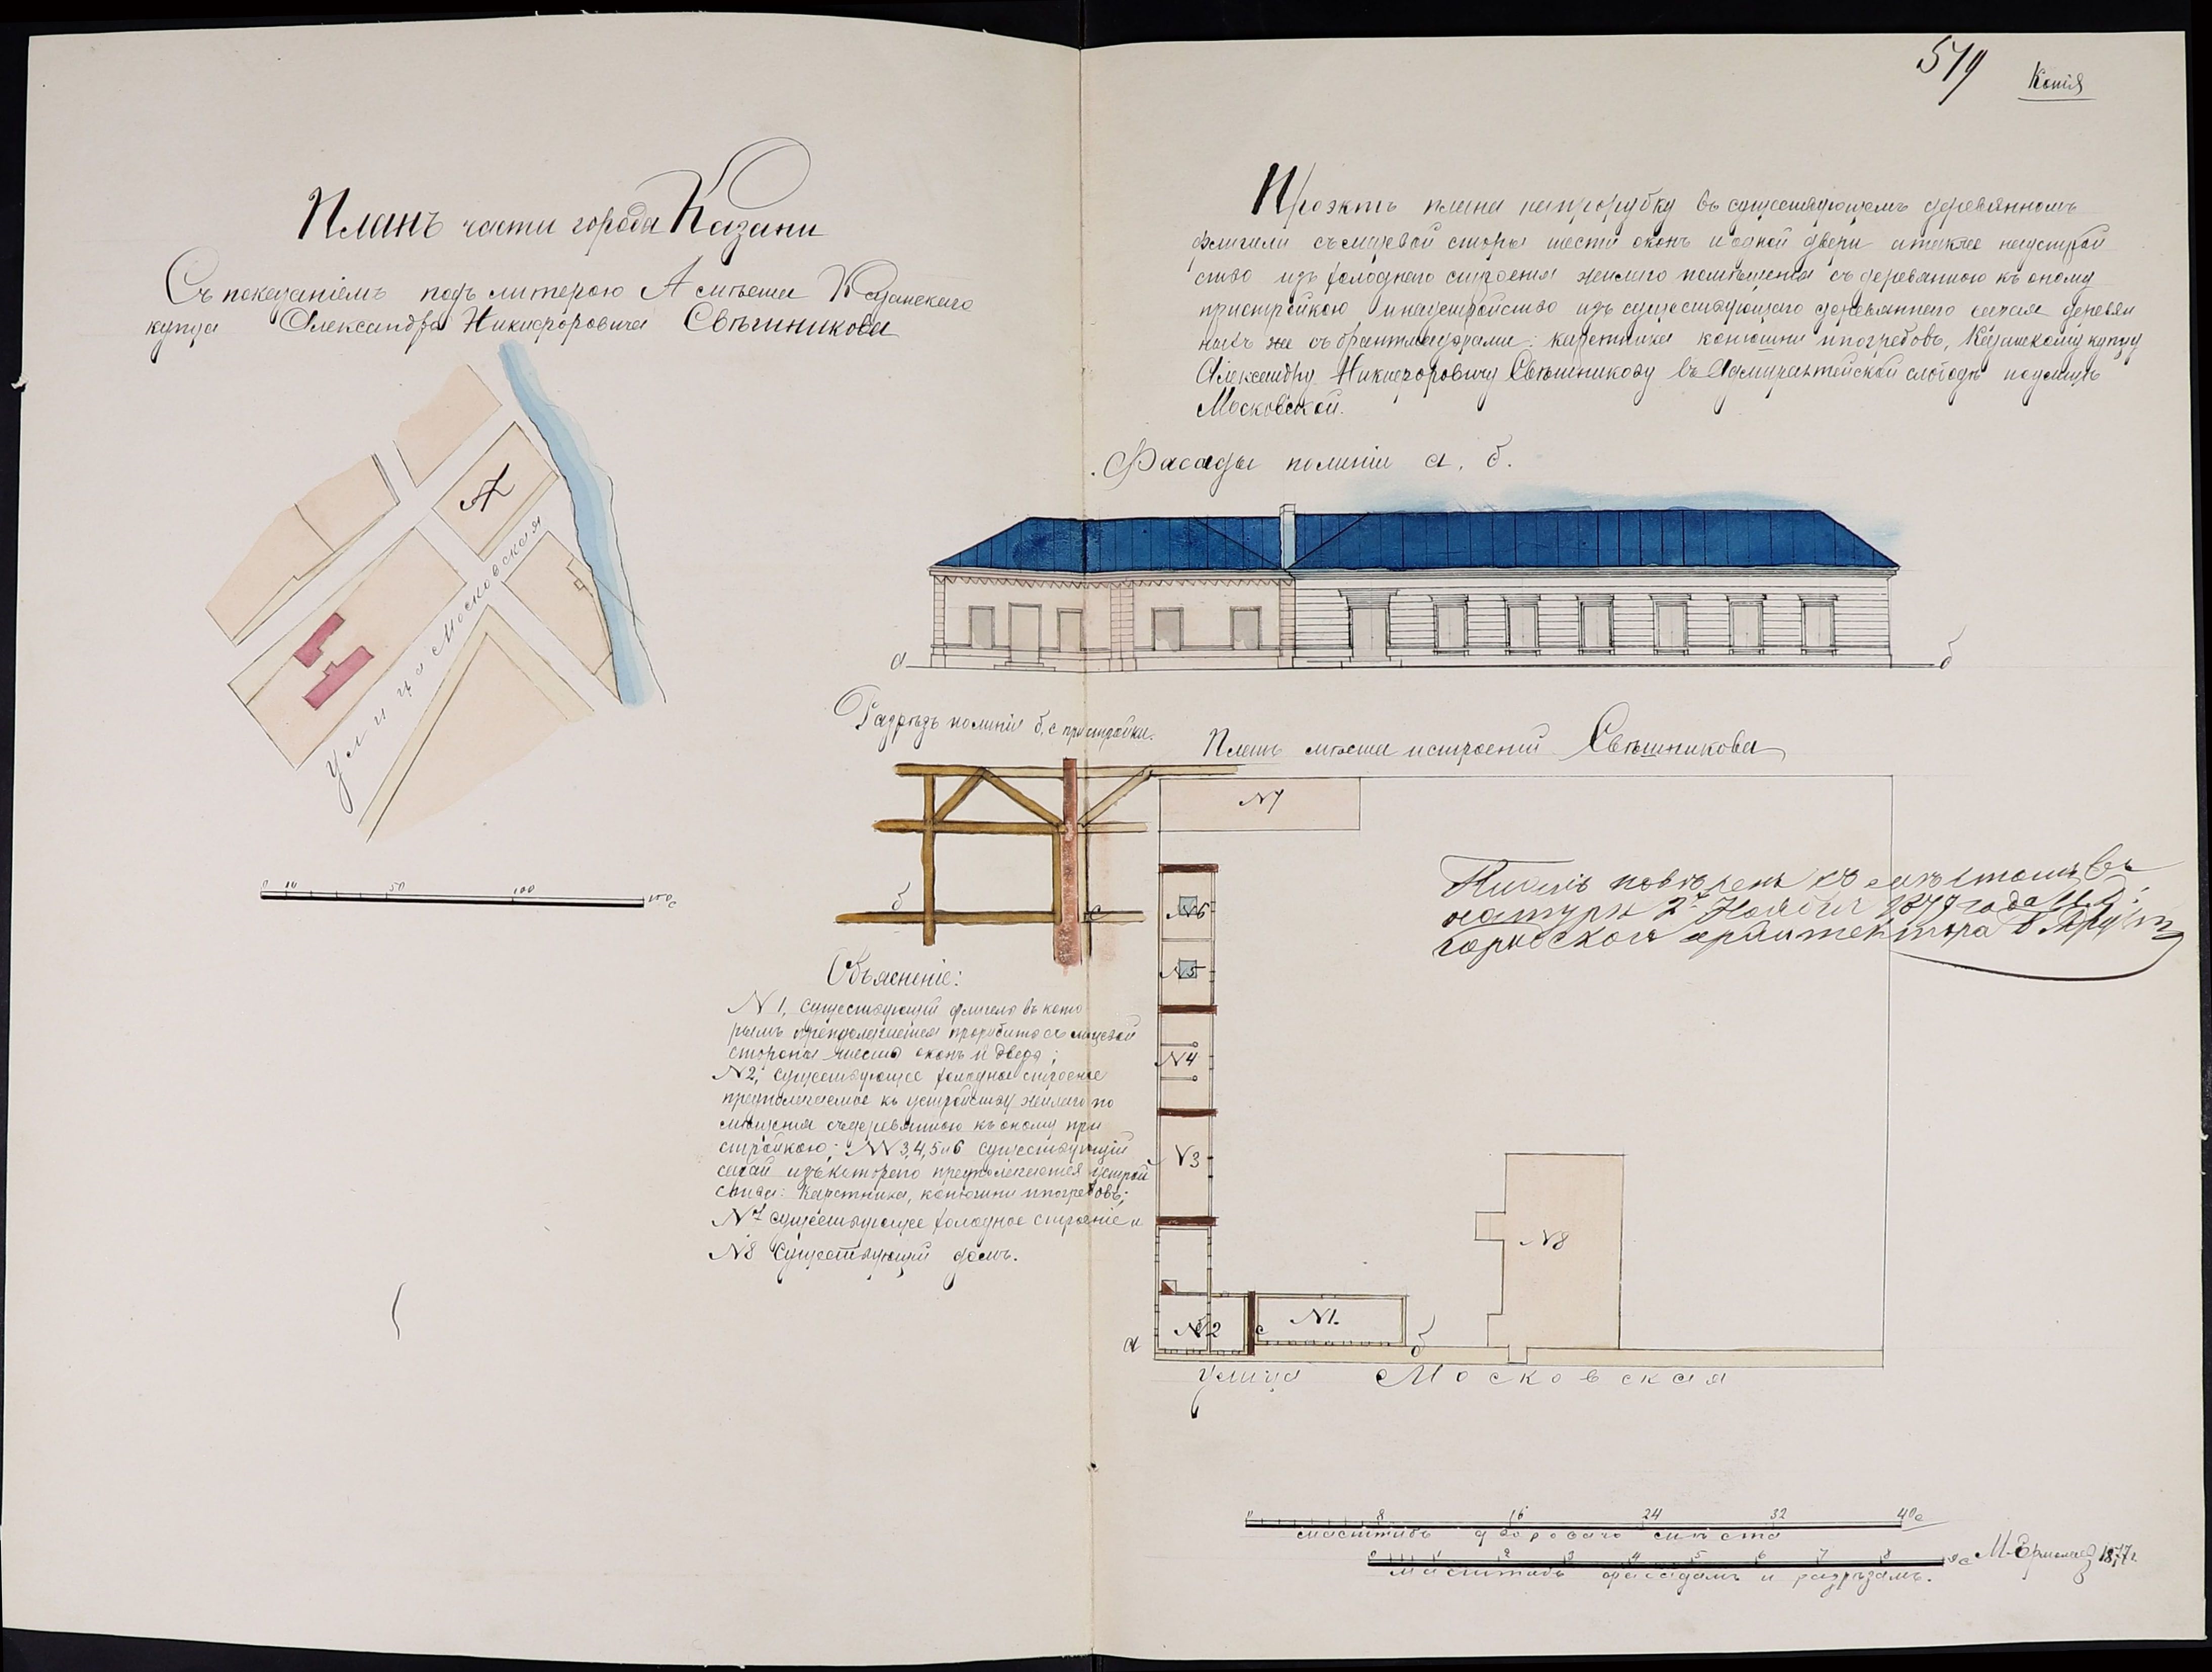 579
Копія
Планъ части города Казани
Съ показаніемъ подъ литерою А мѣста Казанскаго
купца Александра Никифоровича Свѣшникова
А
Улица Московская
0 10 50 100 150 с
Проэктъ плана на прорубку въ существующемъ деревянномъ
флигели съ лицевой стороны шести оконъ и одной двери а также на устрой
ство изъ холоднаго строения жилаго помѣщенія съ деревянною къ оному
пристройкою и на устройство изъ существующаго деревяннаго сарая деревян
ныхъ же съ брантмауэрами: каретника конюшни и погребовъ, Казанскому купцу
Александру Никифоровичу Свѣшникову въ Адмиралтейской слободѣ по улицѣ
Московской.
Фасады по линіи а, б.
а б
Разрѣзъ по линіи б, с пристройки.
б с
Планъ мѣста и строеній Свѣшникова
N7
N6
N5
N4
N3
N2 с N1.
N8
а б
Улица Московская
повѣренъ съ мѣстомъ въ
натурѣ 2го Ноября 1877 года И.д.
городскаго архитектора
Объясненіе:
N 1, существующій флигель въ кото
рымъ предполагается прорубить съ лицевой
стороны шесть оконъ и дверь;
N2, существующее холодное строеніе
предполагаемое къ устройству жилаго по
мѣщения съ деревянною къ оному при
стройкою; NN 3,4,5 и 6 существующій
сарай изъ котораго предполагаются устрой
ства: каретника, конюшни и погребовъ;
N7 существующее холодное строеніе и
N8 Существующій домъ.
0 8 16 24 32 40 с
масштабъ двороваго мѣста
0 1 2 3 4 5 6 7 8 9 с
масштабъ фасадамъ и разрѣзамъ.
М. Ермолаев 1877 г.